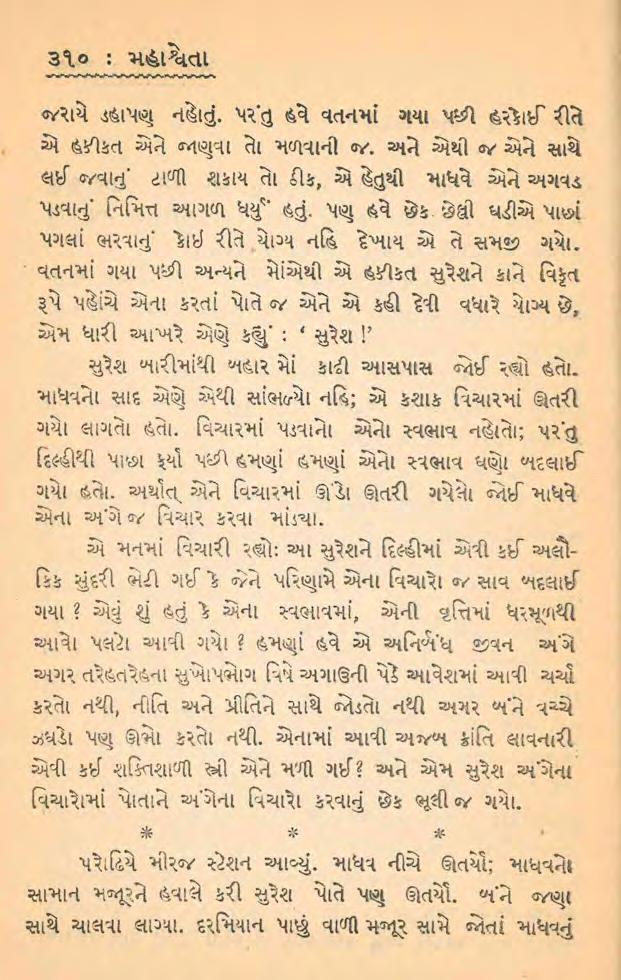 ૩૧૦ : મહાશ્વેતા
જરાયે ડહાપણ નહોતું. પરંતુ હવે વતનમાં ગયા પછી હરકોઈ રીતે
એ હકીકત એને જાણવા તો મળવાની જ. અને એથી જ એને સાથે
લઈ જવાનું ટાળી શકાય તો ઠીક, એ હેતુથી માધવે એને અગવડ
પડવાનું નિમિત્ત આગળ ધર્યું હતું. પણ હવે છેક છેલ્લી ઘડીએ પાછાં
પગલાં ભરવાનું કોઈ રીતે યોગ્ય નહિ દેખાય એ તે સમજી ગયો.
વતનમાં ગયા પછી અન્યને મોંએથી એ હકીકત સુરેશને કાને વિકૃત
રૂપે પહોંચે એના કરતાં પોતે જ એને એ કહી દેવી વધારે યોગ્ય છે,
એમ ધારી આખરે એણે કહ્યું : ‘ સુરેશ !’
સુરેશ બારીમાંથી બહાર મોં કાઢી આસપાસ જોઈ રહ્યો હતો.
માધવનો સાદ એણે એથી સાંભળ્યો નહિ; એ કશાક વિચારમાં ઊતરી
ગયો લાગતો હતો. વિચારમાં પડવાનો એનો સ્વભાવ નહોતો; પરંતુ
દિલ્હીથી પાછા ફર્યા પછી હમણાં હમણાં એનો સ્વભાવ ઘણો બદલાઈ
ગયો હતો. અર્થાત્ એને વિચારમાં ઊંડો ઊતરી ગયેલો જોઈ માધવે
એના અંગે જ વિચાર કરવા માંડ્યા.
એ મનમાં વિચારી રહ્યો: આ સુરેશને દિલ્હીમાં એવી કઈ અલૌ-
કિક સુંદરી ભેટી ગઈ કે જેને પરિણામે એના વિચારો જ સાવ બદલાઈ
ગયા ? એવું શું હતું કે એના સ્વભાવમાં, એની વૃત્તિમાં ધરમૂળથી
આવો પલટો આવી ગયો ? હમણાં હવે એ અનિર્બંધ જીવન અંગે
અગર તરેહતરેહના સુખોપભોગ વિષે અગાઉની પેઠે આવેશમાં આવી ચર્ચા
કરતો નથી, નીતિ અને પ્રીતિને સાથે જોડતો નથી અગર બંને વચ્ચે
ઝઘડો પણ ઊભો કરતો નથી. એનામાં આવી અજબ ક્રાંતિ લાવનારી
એવી કઈ શક્તિશાળી સ્ત્રી એને મળી ગઈ? અને એમ સુરેશ અંગેના
વિચારોમાં પોતાને અંગેના વિચારો કરવાનું છેક ભૂલી જ ગયો.
* * *
પરોઢિયે મીરજ સ્ટેશન આવ્યું. માધવ નીચે ઊતર્યો; માધવનો
સામાન મજૂરને હવાલે કરી સુરેશ પોતે પણ ઊતર્યો. બંને જણા
સાથે ચાલવા લાગ્યા. દરમિયાન પાછું વાળી મજૂર સામે જોતાં માધવનું